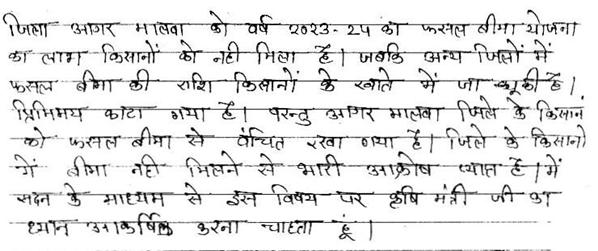 जिला आगर मालवा को वर्ष 2023-24 का फसल बीमा योजना
का लाभ किसानों को नही मिला है। जबकि अन्य जिलों में
फसल बीमा की राशि किसानों के खाते में जा चूकी है।
प्रिमिमय काटा गया है। परन्तु आगर मालवा जिले के किसानं
को फसल बीमा से वंचित रखा गया है। जिले के किसानो
में बीमा नही मिलने से भारी आक्रोष व्याप्त है। में
सदन के माध्यम से इस विषय पर कृषि मंत्री जी का
ध्यान आकर्षिक करना चाहता हूं।